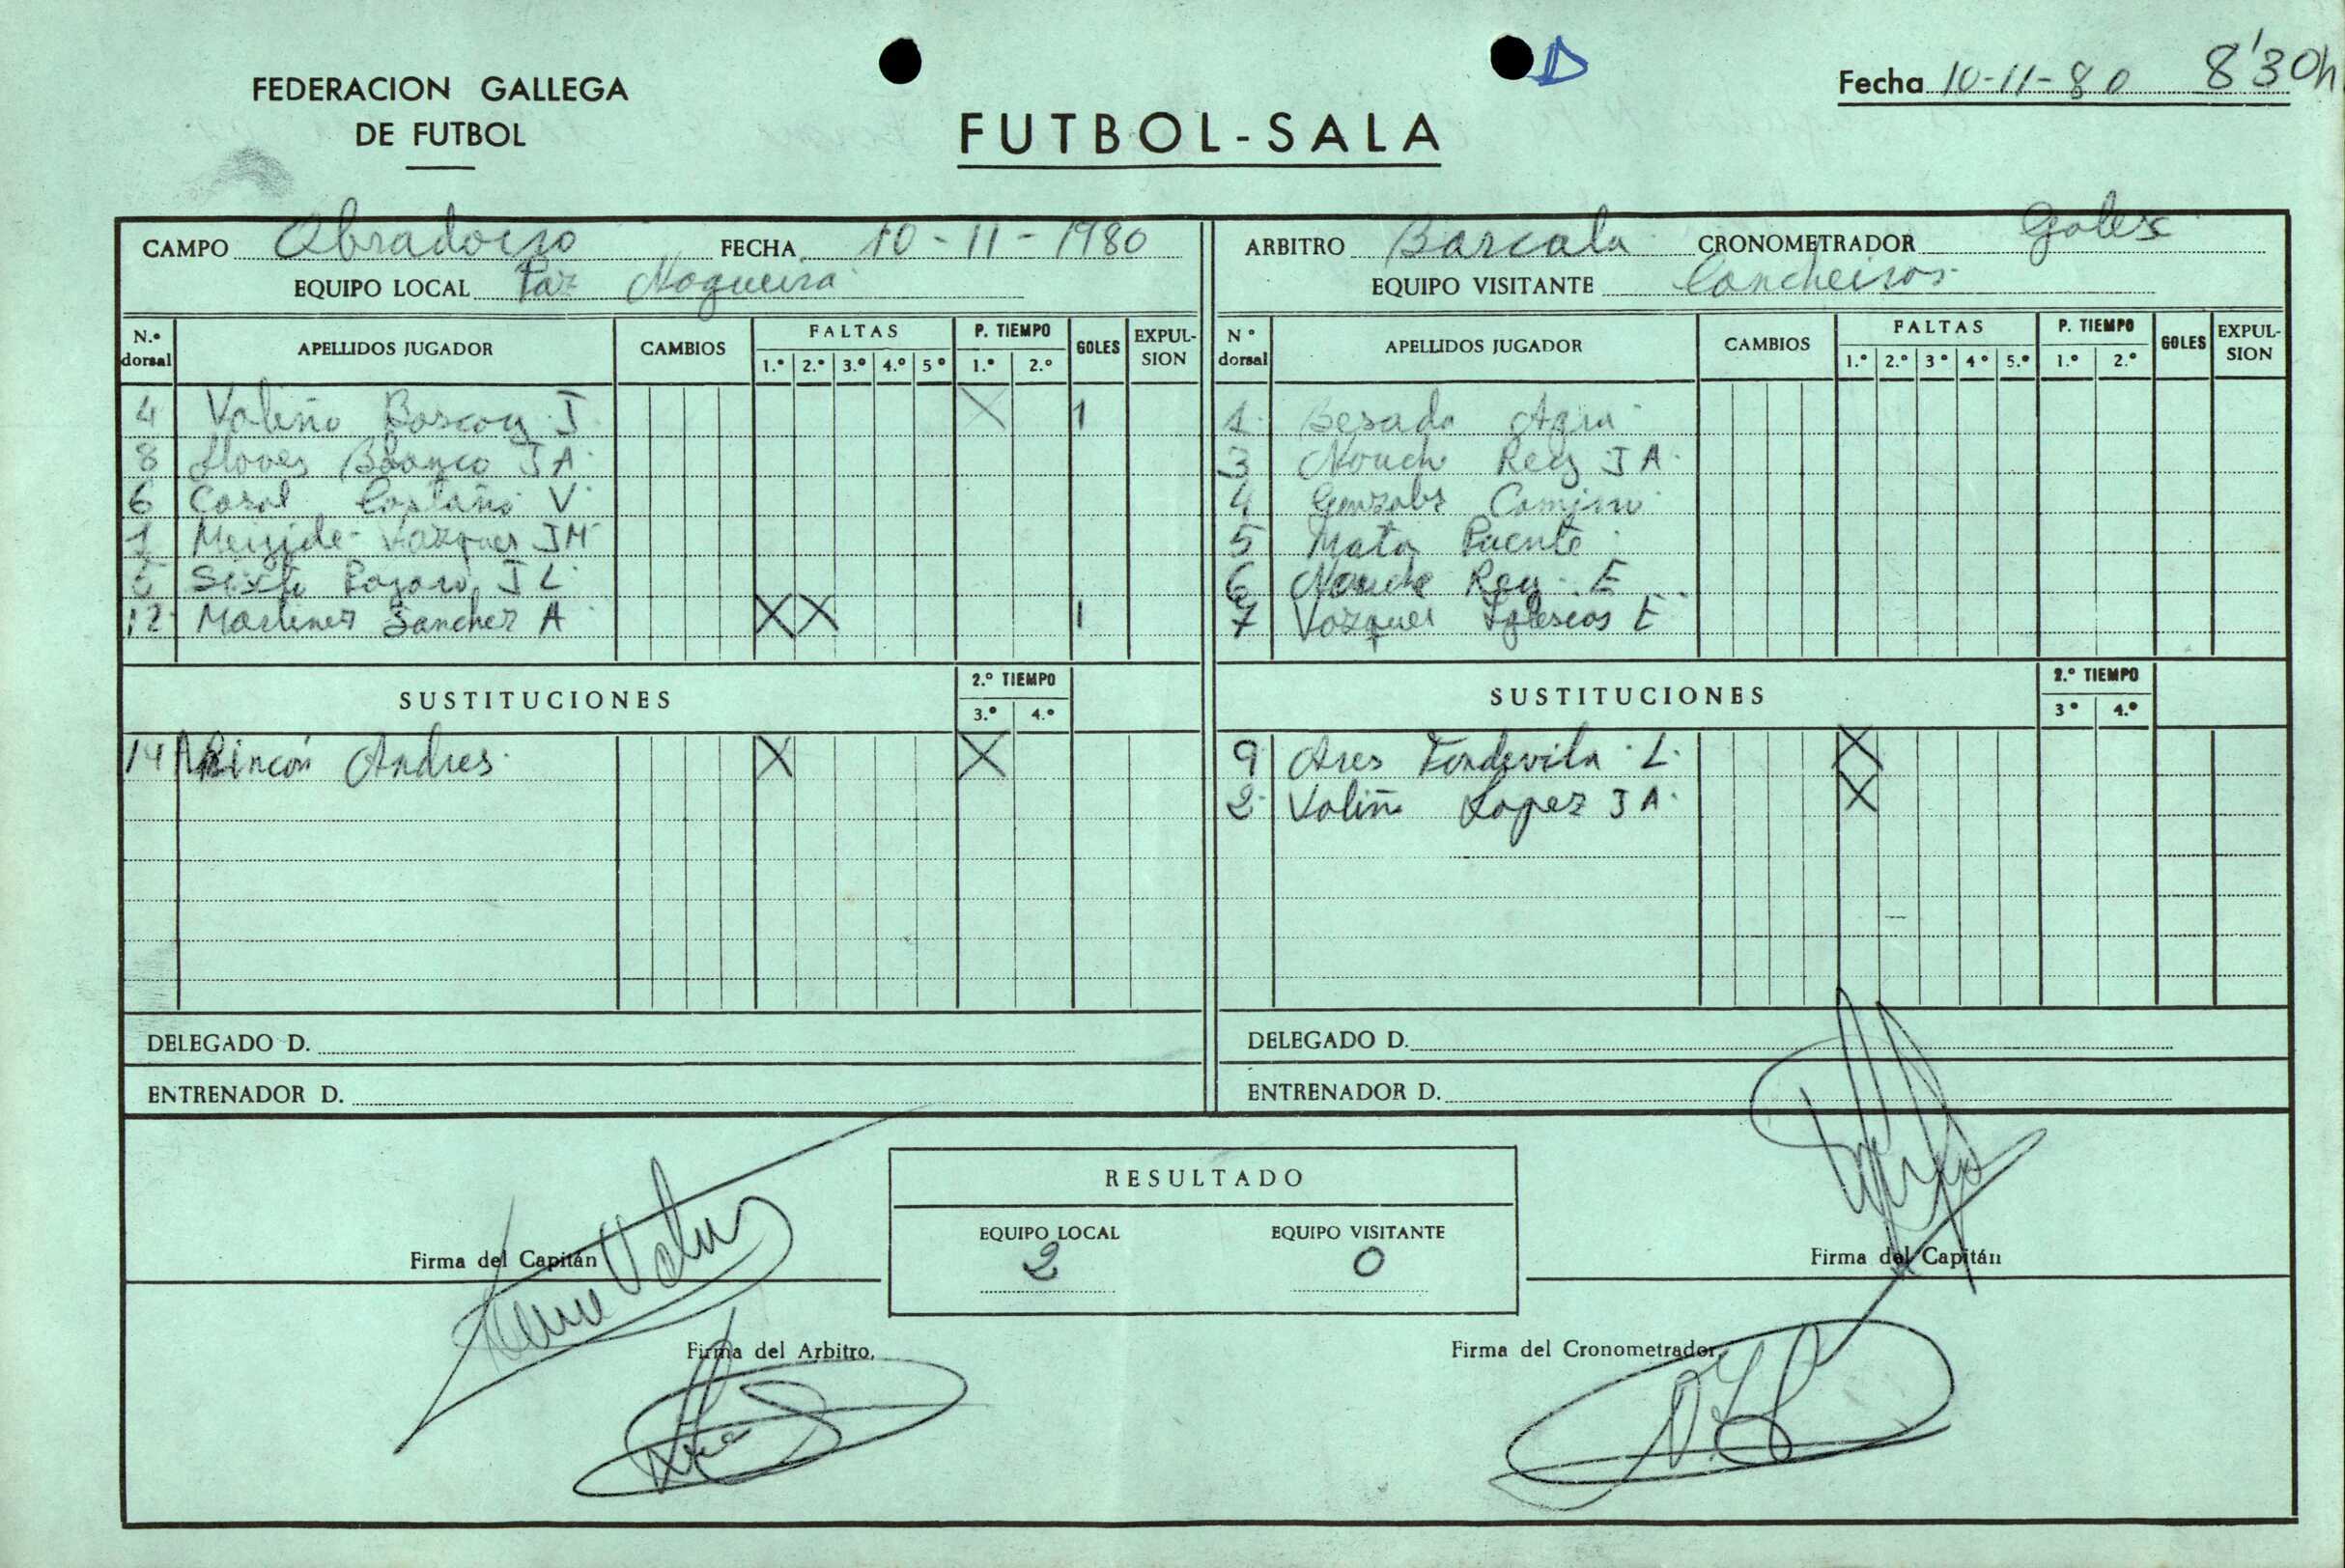 FEDERACION GALLEGA
DE FUTBOL
D
Fecha 10-11-80 8'30h
FUTBOL-SALA
CAMPO Obradoiro FECHA 10-11-1980
EQUIPO LOCAL Paz Nogueira
ARBITRO Barcala CRONOMETRADOR
EQUIPO VISITANTE Concheiros
N.º dorsal APELLIDOS JUGADOR CAMBIOS FALTAS 1.º 2.º 3.º 4.º 5º P. TIEMPO 1.º 2.º GOLES EXPULSION
4 Valiño Boscoy J. X 1
8 Lloves Blanco J A.
6 Casal Castaño V.
1 Meijide Vazquez J M
Sixto J L.
12 Martinez Sanchez A X X 1
SUSTITUCIONES 2.º TIEMPO 3.º 4.º
14 Rincón Andres. X X
DELEGADO D.
ENTRENADOR D.
Nº dorsal APELLIDOS JUGADOR CAMBIOS FALTAS 1.º 2.º 3º 4º 5.º P. TIEMPO 1.º 2.º GOLES EXPULSION
1 Besada Agra
3 Nouche Rey J A.
4 Gonzalez Camino
5 Mata Puente
6 Nouche Rey. E
7 Vazquez Iglesias E
SUSTITUCIONES 2.º TIEMPO 3º 4.º
9 Ares Fondevila L. X
2 Valiño Lopez J A. X
DELEGADO D.
ENTRENADOR D.
RESULTADO
EQUIPO LOCAL EQUIPO VISITANTE
2 0
Firma del Capitán
Firma del Capitán
Firma del Arbitro,
Firma del Cronometrador,